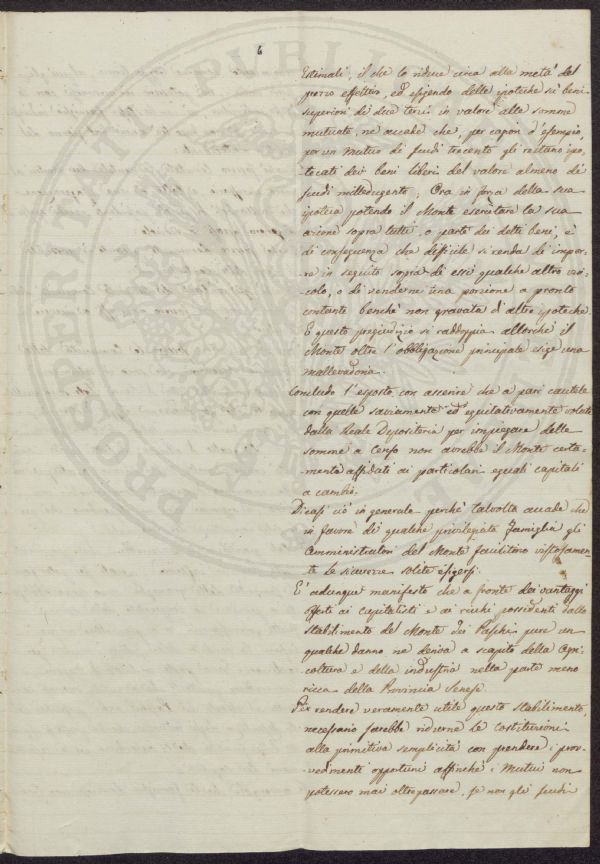 6
Estimali, il che lo riduce circa alla metà del
prezzo effettivo, ed essendo delle ipoteche si beni
superiori di due terzi in valore alle somme
mutuate, ne accade che, per capon d'esempio,
per un Mutuo di scudi trecento gli restano ipo,
tecati dei beni liberi del valore almeno di
scudi milleduegento. Ora in forza della sua
ipoteca potendo il Monte esercitare la sua
azione sopra tutti, o parte dei detti beni, è
di conseguenza che difficile si renda di impor=
re in seguito sopra di essi qualche altro vin=
colo, o di venderne una porzione a pronto
contante benchè non gravata d'altre ipoteche.
E questo pregiudizio si raddoppia allorchè il
Monte oltre l'obbligazione principale esige una
mallevadoria.
Concludo l'esposto con asserire che a pari cautele
con quelle saviamente ed equitativamente volute
dalla Reale Depositeria per impiegare delle
somme a Censo non avrebbe il Monte certa=
mente affidati ai particolari eguali capitali
a cambio.
Dicasi ciò in generale perchè talvolta accade che
in favore di qualche privilegiata famiglia gli
Amministratori del Monte facilitino vistosamen=
te le sicurezze solite esigersi.
E' adunque manifesto che a fronte dei vantaggi
offerti ai capitalisti e ai ricchi possidenti dallo
Stabilimento del Monte dei Paschi pure un
qualche danno ne deriva a scapito della Agri=
coltura e della industria nella parte meno
ricca della Provincia Senese.
Per rendere veramente utile questo stabilimento,
necessario sarebbe ridurne le costituzioni
alla primitiva semplicità con prendere i prov=
vedimenti opportuni affinchè i Mutui non
potessero mai oltrepassare, se non gli scudi